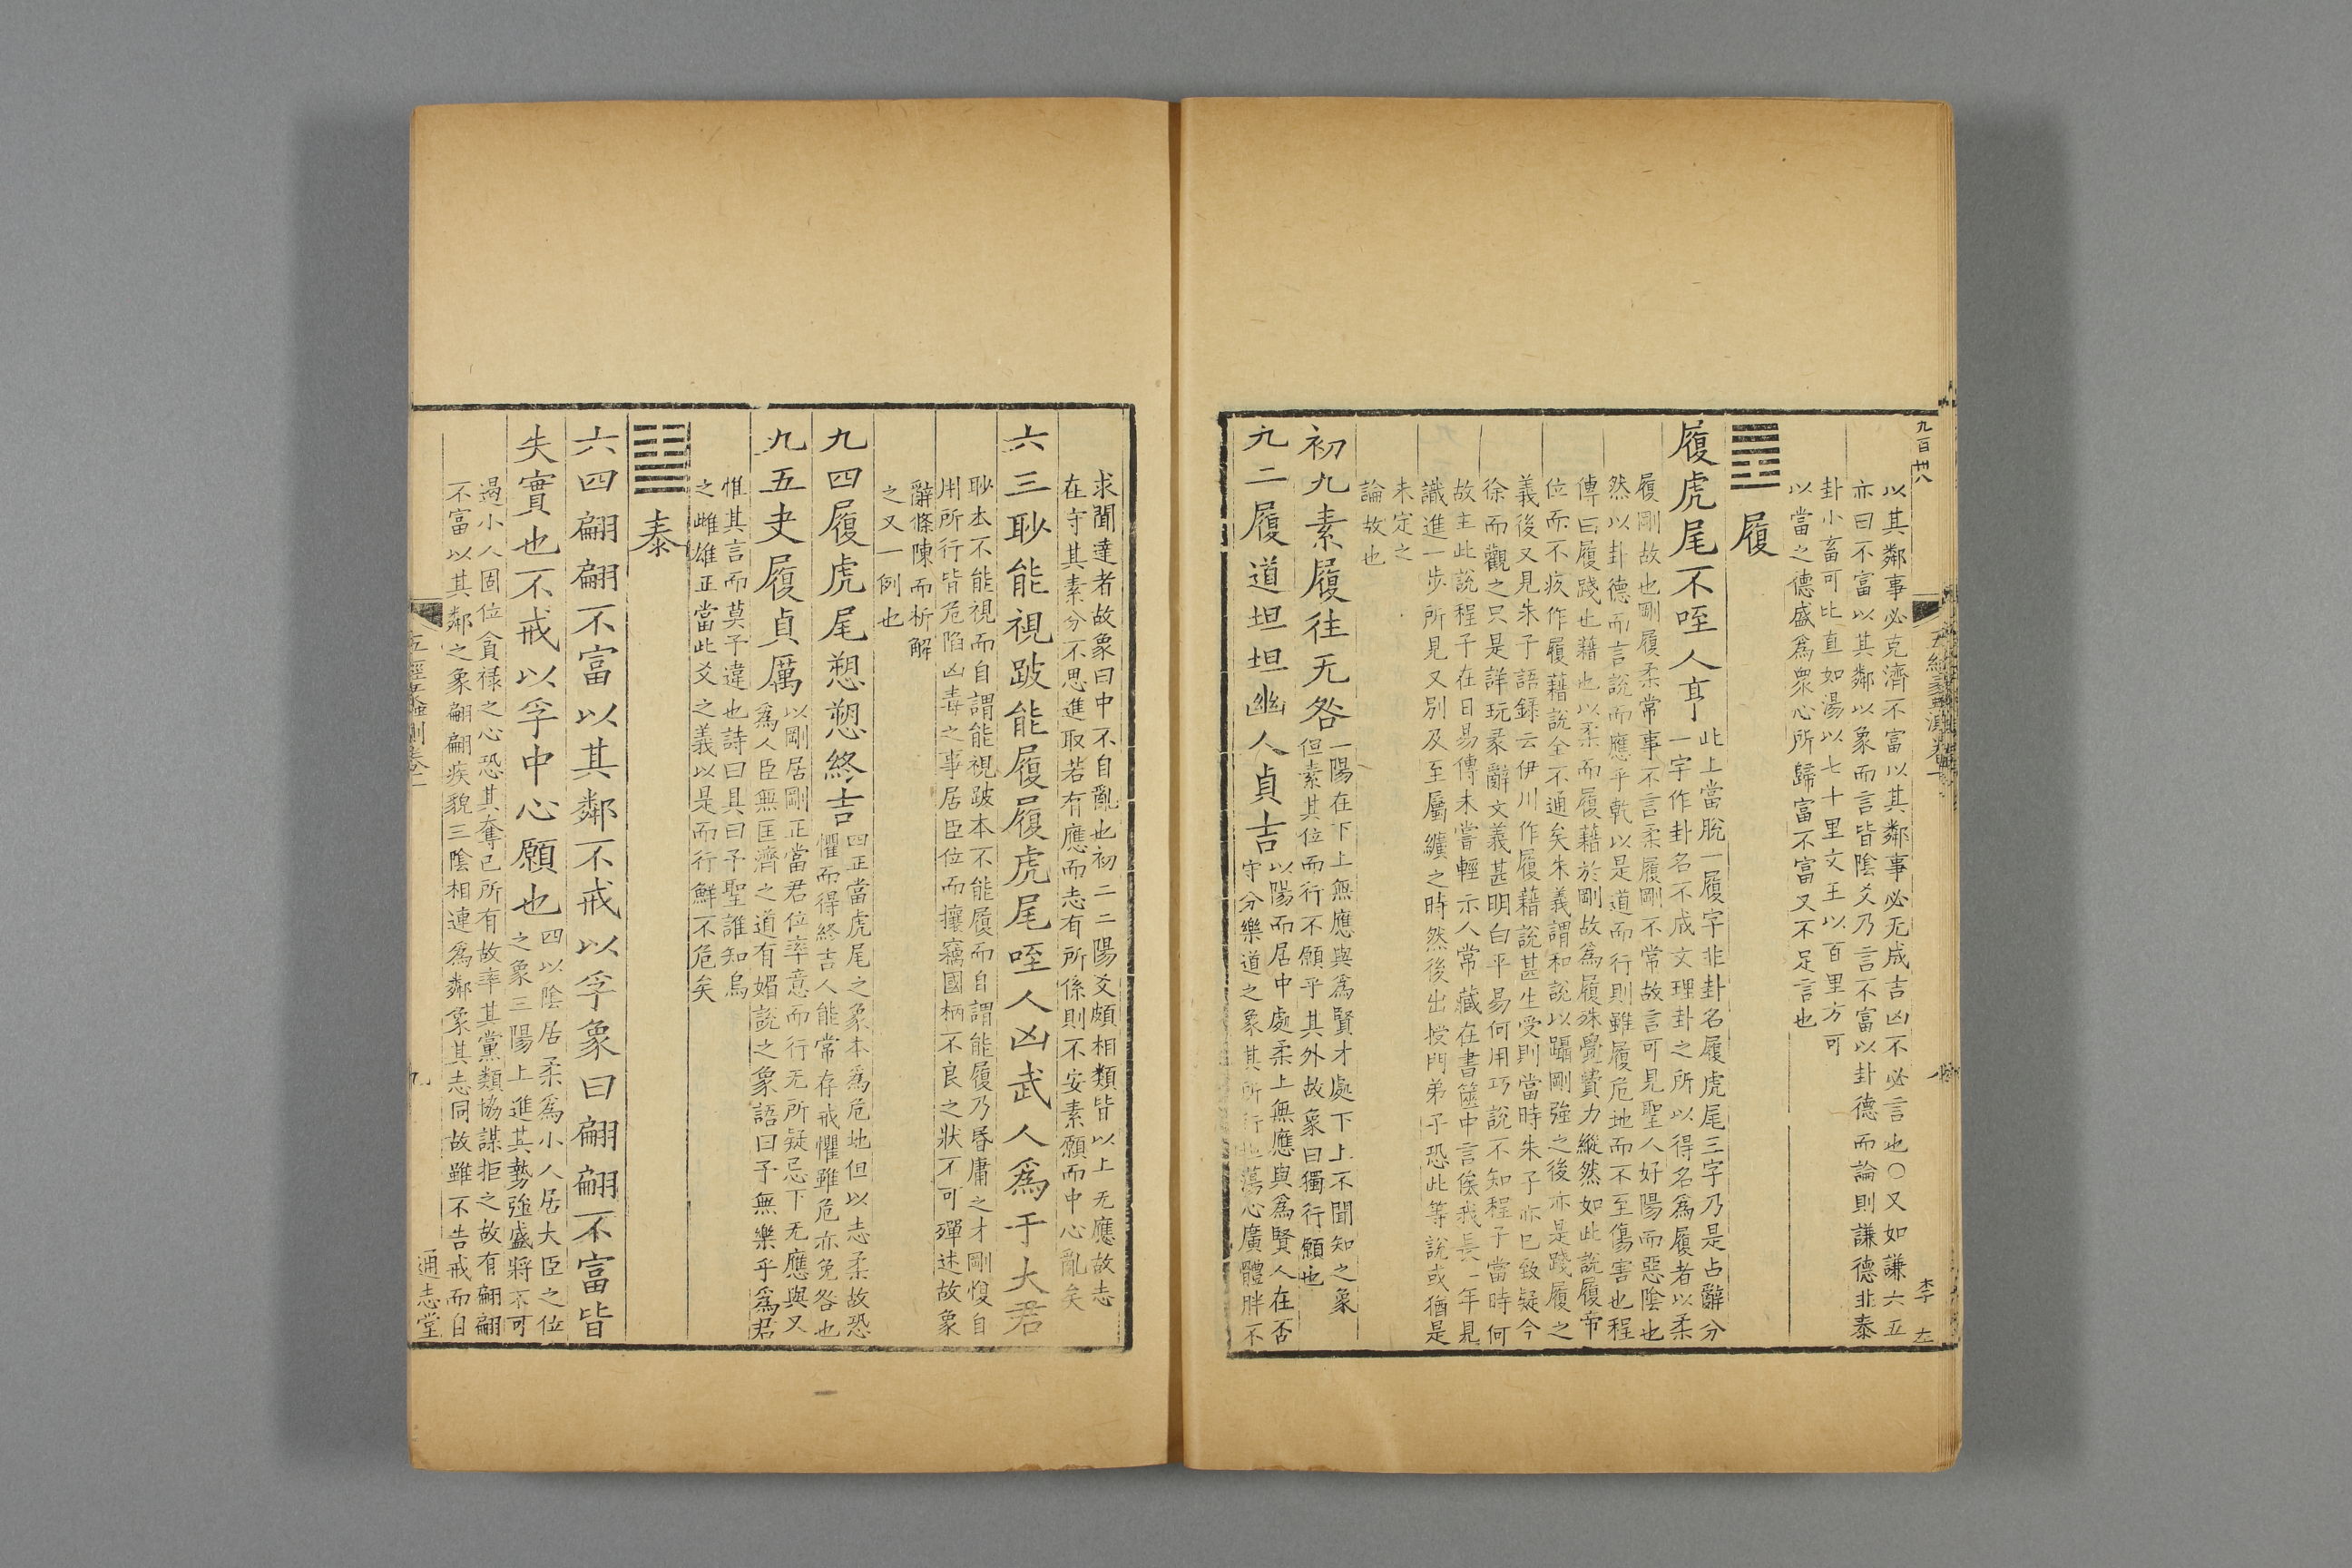 九百卅八
以其鄰事必克濟不富以其鄰事必无成吉凶不必言也○又如謙六五
亦曰不富以其鄰以象而言皆陰爻乃言不富以卦德而論則謙德非泰
卦小畜可比直如湯以七十里文王以百里方可
以當之德盛爲衆心所歸富不富又不足言也
履
履虎尾不咥人亨
此上當脫一履字非卦名履虎尾三字乃是占辭分
一字作卦名不成文理卦之所以得名爲履者以柔
履剛故也剛履柔常事不言柔履剛不常故言可見聖人好陽而惡陰也
然以卦德而言說而應乎乾以是道而行則雖履危地而不至傷害也程
傳曰履踐也藉也以柔而履藉於剛故爲履殊覺費力縱然如此說履帝
位而不疚作履藉說全不通矣朱義謂和說以躡剛強之後亦是踐履之
義後又見朱子語錄云伊川作履藉說甚生受則當時朱子亦已致疑今
徐而觀之只是詳玩彖辭文義甚明白平易何用巧說不知程子當時何
故主此說程子在日易傳未嘗輕示人常藏在書篋中言俟我長一年見
識進一步所見又別及至屬纊之時然後出授門弟子恐此等說或猶是
未定之
論故也
初九素履往无咎
一陽在下上無應與爲賢才處下上不聞知之象
但素其位而行不願乎其外故象曰獨行願也
九二履道坦坦幽人貞吉
以陽而居中處柔上無應與爲賢人在否
守分樂道之象其所行也蕩心廣體胖不
李
五經蠡測卷一
求聞達者故象曰中不自亂也初二二陽爻頗相類皆以上无應故志
在守其素分不思進取若有應而志有所係則不安素願而中心亂矣
六三眇能視跛能履履虎尾咥人凶武人爲于大君
眇本不能視而自謂能視跛本不能履而自謂能履乃昏庸之才剛愎自
用所行皆危陷凶毒之事居臣位而攘竊國柄不良之狀不可殫述故象
辭條陳而析解
之又一例也
九四履虎尾愬愬終吉
四正當虎尾之象本爲危地但以志柔故恐
懼而得終吉人能常存戒懼雖危亦免咎也
九五夬履貞厲
以剛居剛正當君位率意而行无所疑忌下无應與又
爲人臣無匡濟之道有媚說之象語曰予無樂乎爲君
惟其言而莫予違也詩曰具曰予聖誰知烏
之雌雄正當此爻之義以是而行鮮不危矣
泰
六四翩翩不富以其鄰不戒以孚象曰翩翩不富皆
失實也不戒以孚中心願也
四以陰居柔爲小人居大臣之位
之象三陽上進其勢強盛將不可
遏小人固位貪祿之心恐其奪己所有故率其黨類協謀拒之故有翩翩
不富以其鄰之象翩翩疾貌三陰相連爲鄰象其志同故雖不告戒而自
五經蠡測卷一
九
通志堂